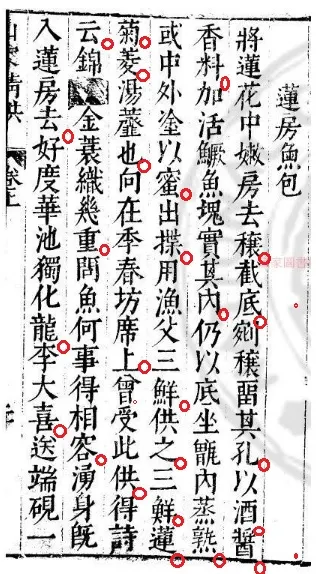 蓮房魚包
將蓮花中嫩房去穰截底剜穰留其孔以酒醬
香料加活鱖魚塊實其內仍以底坐甑內蒸熟
或中外塗以蜜出揲用漁父三鮮供之三鮮蓮
菊菱湯虀也向在季春坊席上曾受此供得詩
云錦 金蓑織幾重問魚何事得相容湧身既
入蓮房去好度華池獨化龍李大喜送端硯一
山家清供 卷上